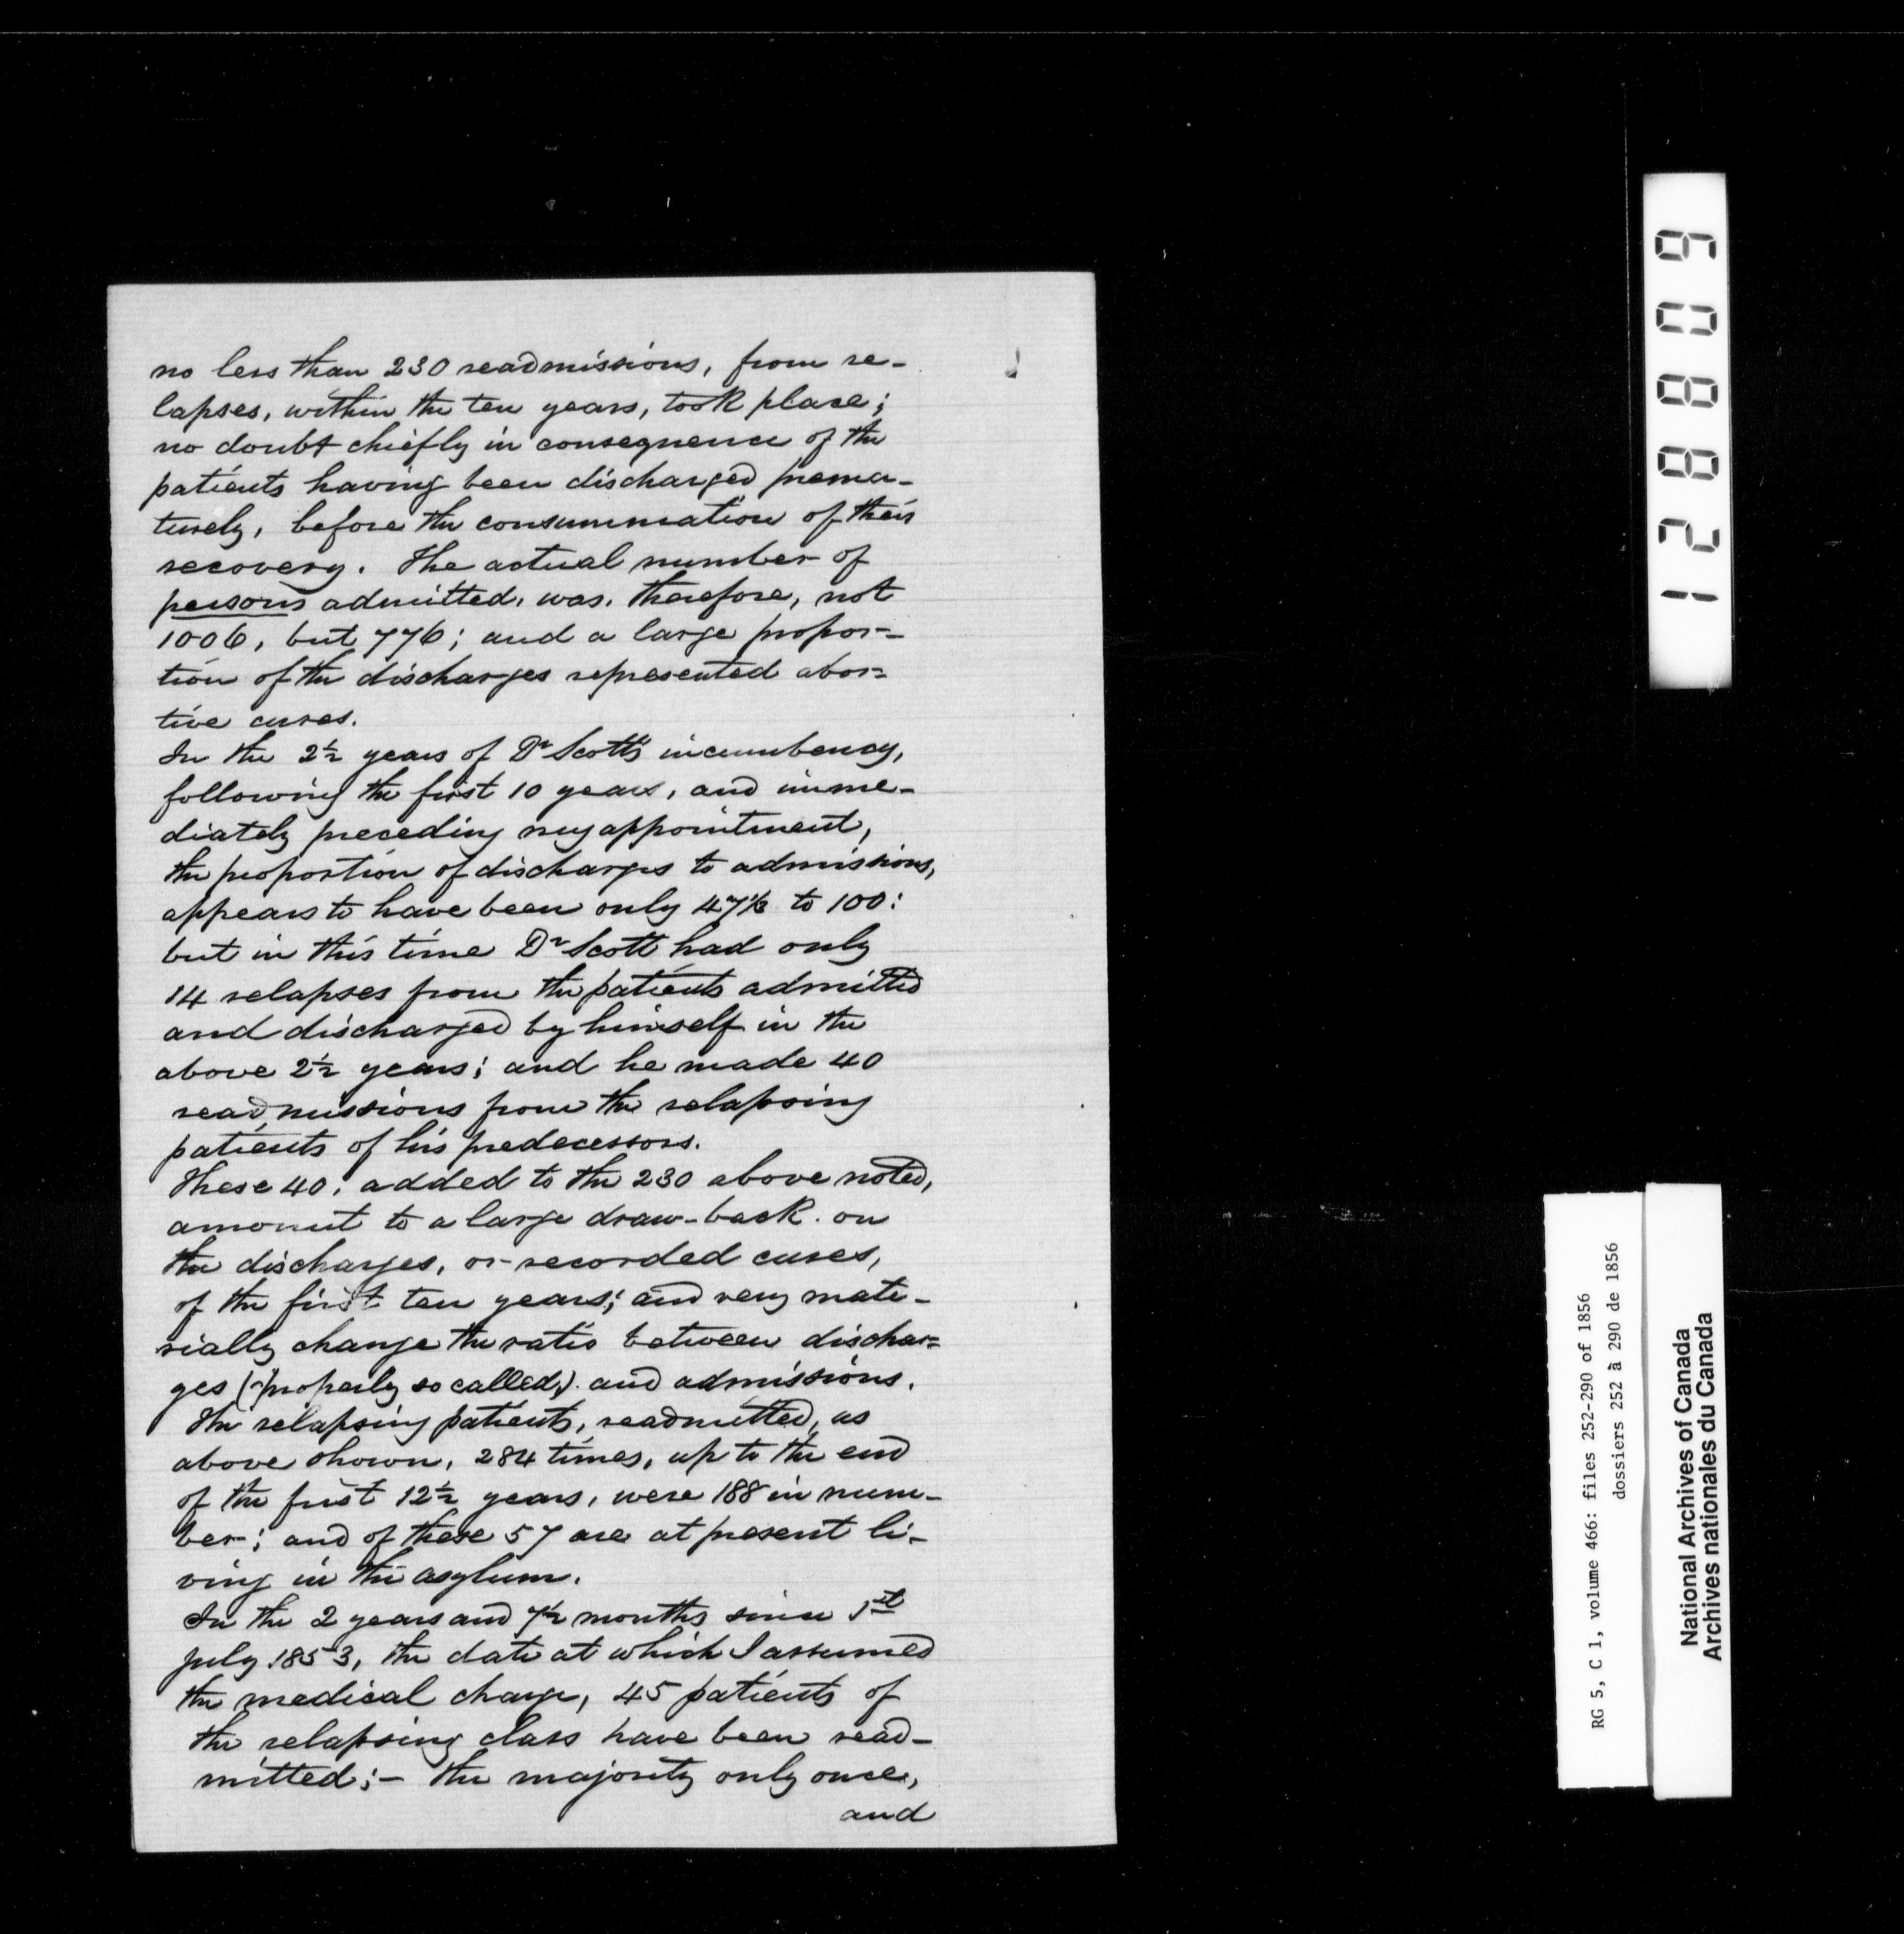 no less than 230 readmissions, from re-
lapses, within the ten years, took place;
no doubt chiefly in consequence of the
patients having been discharged prema-
turely, before the consummation of their
recovery. The actual number of
persons admitted, was, therefore, not
1006, but 776; and a large propor-
tion of the discharges represented abor=
tive cures.
In the 2½ years of Dr Scott's incumbency,
following the first 10 years, and imme-
diately preceding my appointment,
the proportion of discharges to admissions,
appears to have been only 47⅓ to 100:
but in this time Dr Scott had only
14 relapses from the patients admitted
and discharged by himself in the
above 2½ years; and he made 40
readmissions from the relapsing
patients of his predecessors.
These 40, added to the 230 above noted,
amount to a large draw-back on
the discharges, or recorded cures,
of the first ten years; and very mate-
rially change the ratio between dischar=
ges (properly so called,) and admissions.
The relapsing patients, readmitted, as
above shown, 284 times, up to the end
of the first 12½ years, were 188 in num-
ber; and of these 57 are at present li-
ving in the asylum.
In the 2 years and 7½ months since 1st
July 1853, the date at which I assumed
the medical charge, 45 patients of
the relapsing class have been read-
mitted;- the majority only once,
and
128809
RG 5, C 1, volume 466: files 252-290 of 1856
dossiers 252 à 290 de 1856
National Archives of Canada
Archives nationales du Canada